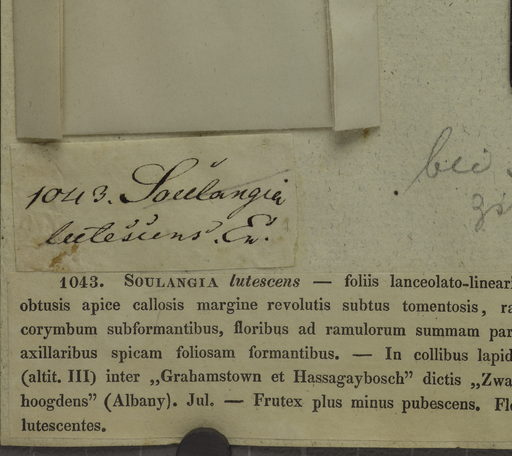 1043. Soulangia
lutescens. E.
bei
1043. SOULANGIA lutescens — foliis lanceolato-lineari
obtusis apice callosis margine revolutis subtus tomentosis, ra
corymbum subformantibus, floribus ad ramulorum summam par
axillaribus spicam foliosam formantibus. — In collibus lapid
(altit. III) inter „Grahamstown et Hassagaybosch” dictis „Zwa
hoogdens” (Albany). Jul. — Frutex plus minus pubescens. Flo
lutescentes.